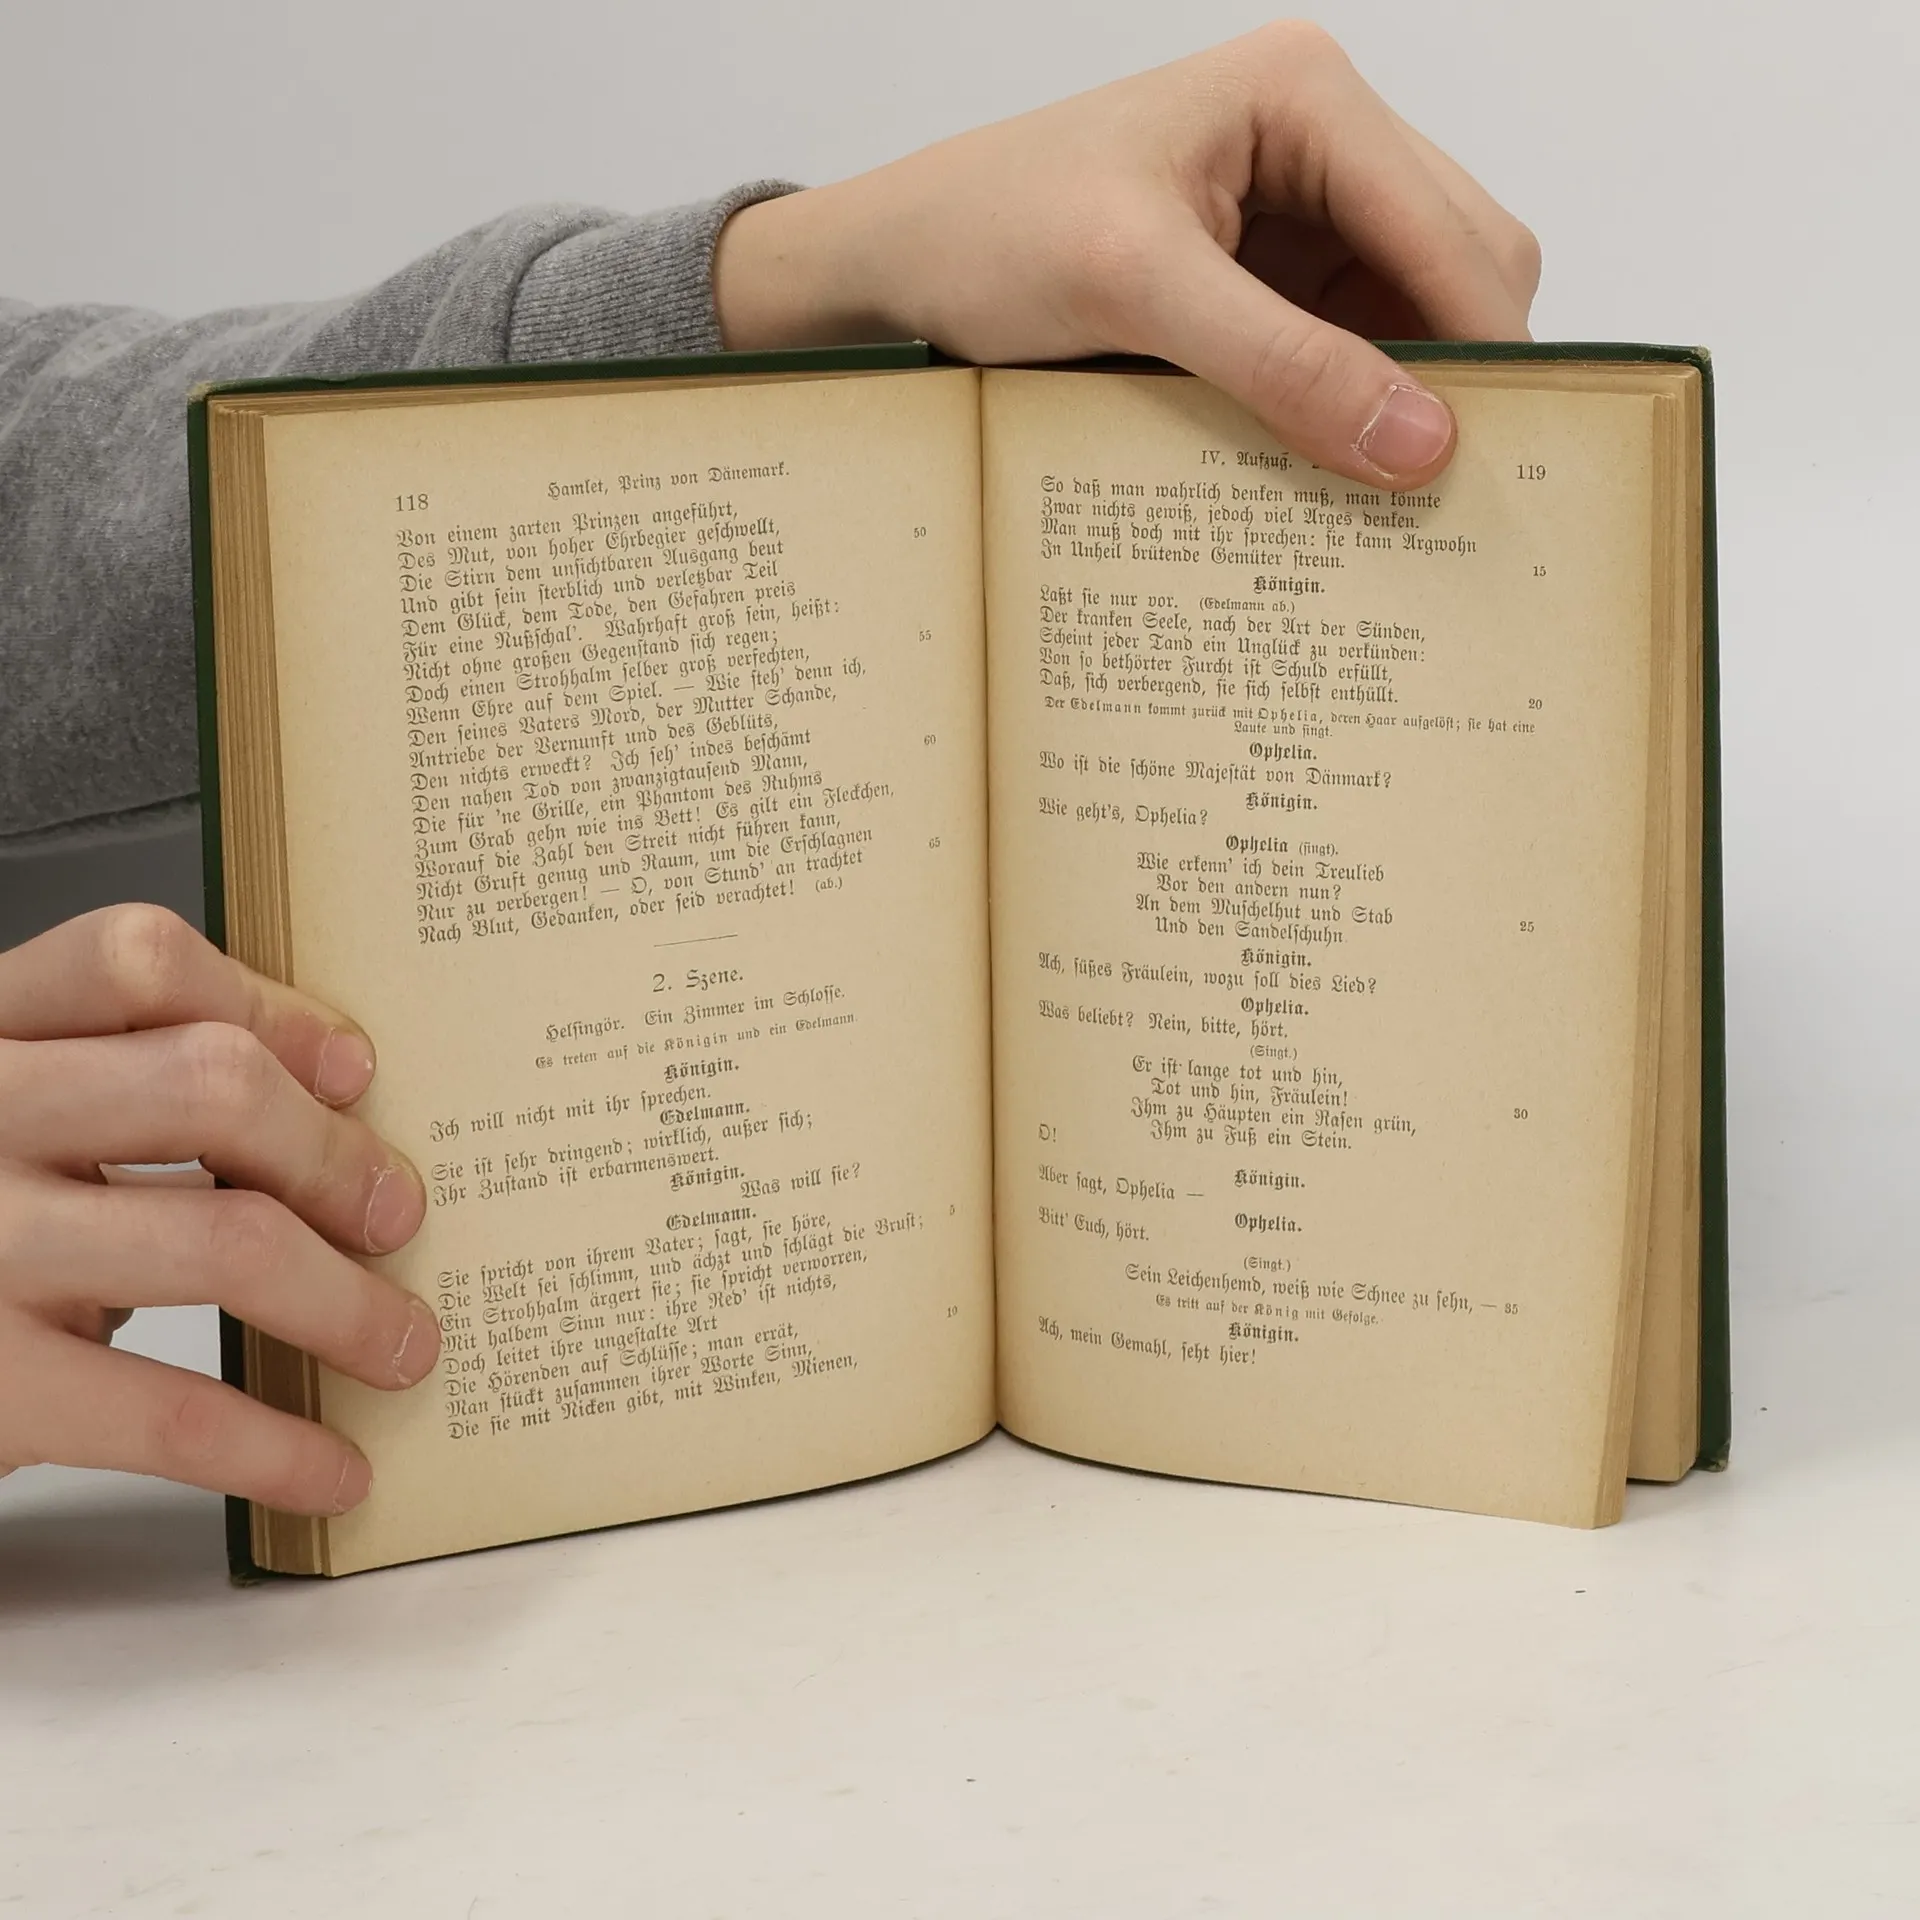 118
Hamlet, Prinz von Dänemark.
Von einem zarten Prinzen angeführt,
Des Mut, von hoher Ehrbegier geschwellt, 50
Die Stirn dem unsichtbaren Ausgang beut
Und gibt sein sterblich und verletzbar Teil
Dem Glück, dem Tode, den Gefahren preis
Für eine Nußschal'. Wahrhaft groß sein, heißt:
Nicht ohne großen Gegenstand sich regen; 55
Doch einen Strohhalm selber groß verfechten,
Wenn Ehre auf dem Spiel. — Wie steh' denn ich,
Den seines Vaters Mord, der Mutter Schande,
Antriebe der Vernunft und des Geblüts,
Den nichts erweckt? Ich seh' indes beschämt 60
Den nahen Tod von zwanzigtausend Mann,
Die für 'ne Grille, ein Phantom des Ruhms
Zum Grab gehn wie ins Bett! Es gilt ein Fleckchen,
Worauf die Zahl den Streit nicht führen kann,
Nicht Gruft genug und Raum, um die Erschlagnen 65
Nur zu verbergen! — O, von Stund' an trachtet
Nach Blut, Gedanken, oder seid verachtet! (ab.)
2. Szene.
Helsingör. Ein Zimmer im Schlosse.
Es treten auf die Königin und ein Edelmann.
Königin.
Ich will nicht mit ihr sprechen.
Edelmann.
Sie ist sehr dringend; wirklich, außer sich;
Ihr Zustand ist erbarmenswert.
Königin.
Was will sie?
Edelmann.
Sie spricht von ihrem Vater; sagt, sie höre, 5
Die Welt sei schlimm, und ächzt und schlägt die Brust;
Ein Strohhalm ärgert sie; sie spricht verworren,
Mit halbem Sinn nur: ihre Red' ist nichts,
Doch leitet ihre ungestalte Art
Die Hörenden auf Schlüsse; man errät, 10
Man stückt zusammen ihrer Worte Sinn,
Die sie mit Nicken gibt, mit Winken, Mienen,
IV. Aufzug.
119
So daß man wahrlich denken muß, man könnte
Zwar nichts gewiß, jedoch viel Arges denken.
Man muß doch mit ihr sprechen: sie kann Argwohn
In Unheil brütende Gemüter streun. 15
Königin.
Laßt sie nur vor. (Edelmann ab.)
Der kranken Seele, nach der Art der Sünden,
Scheint jeder Tand ein Unglück zu verkünden:
Von so bethörter Furcht ist Schuld erfüllt,
Daß, sich verbergend, sie sich selbst enthüllt. 20
Der Edelmann kommt zurück mit Ophelia, deren Haar aufgelöst; sie hat eine
Laute und singt.
Ophelia.
Wo ist die schöne Majestät von Dänmark?
Königin.
Wie geht's, Ophelia?
Ophelia (singt).
Wie erkenn' ich dein Treulieb
Vor den andern nun?
An dem Muschelhut und Stab
Und den Sandelschuhn. 25
Königin.
Ach, süßes Fräulein, wozu soll dies Lied?
Ophelia.
Was beliebt? Nein, bitte, hört.
(Singt.)
Er ist lange tot und hin,
Tot und hin, Fräulein!
Ihm zu Häupten ein Rasen grün, 30
Ihm zu Fuß ein Stein.
O!
Königin.
Aber sagt, Ophelia —
Ophelia.
Bitt' Euch, hört.
(Singt.)
Sein Leichenhemd, weiß wie Schnee zu sehn, — 35
Es tritt auf der König mit Gefolge.
Königin.
Ach, mein Gemahl, seht hier!